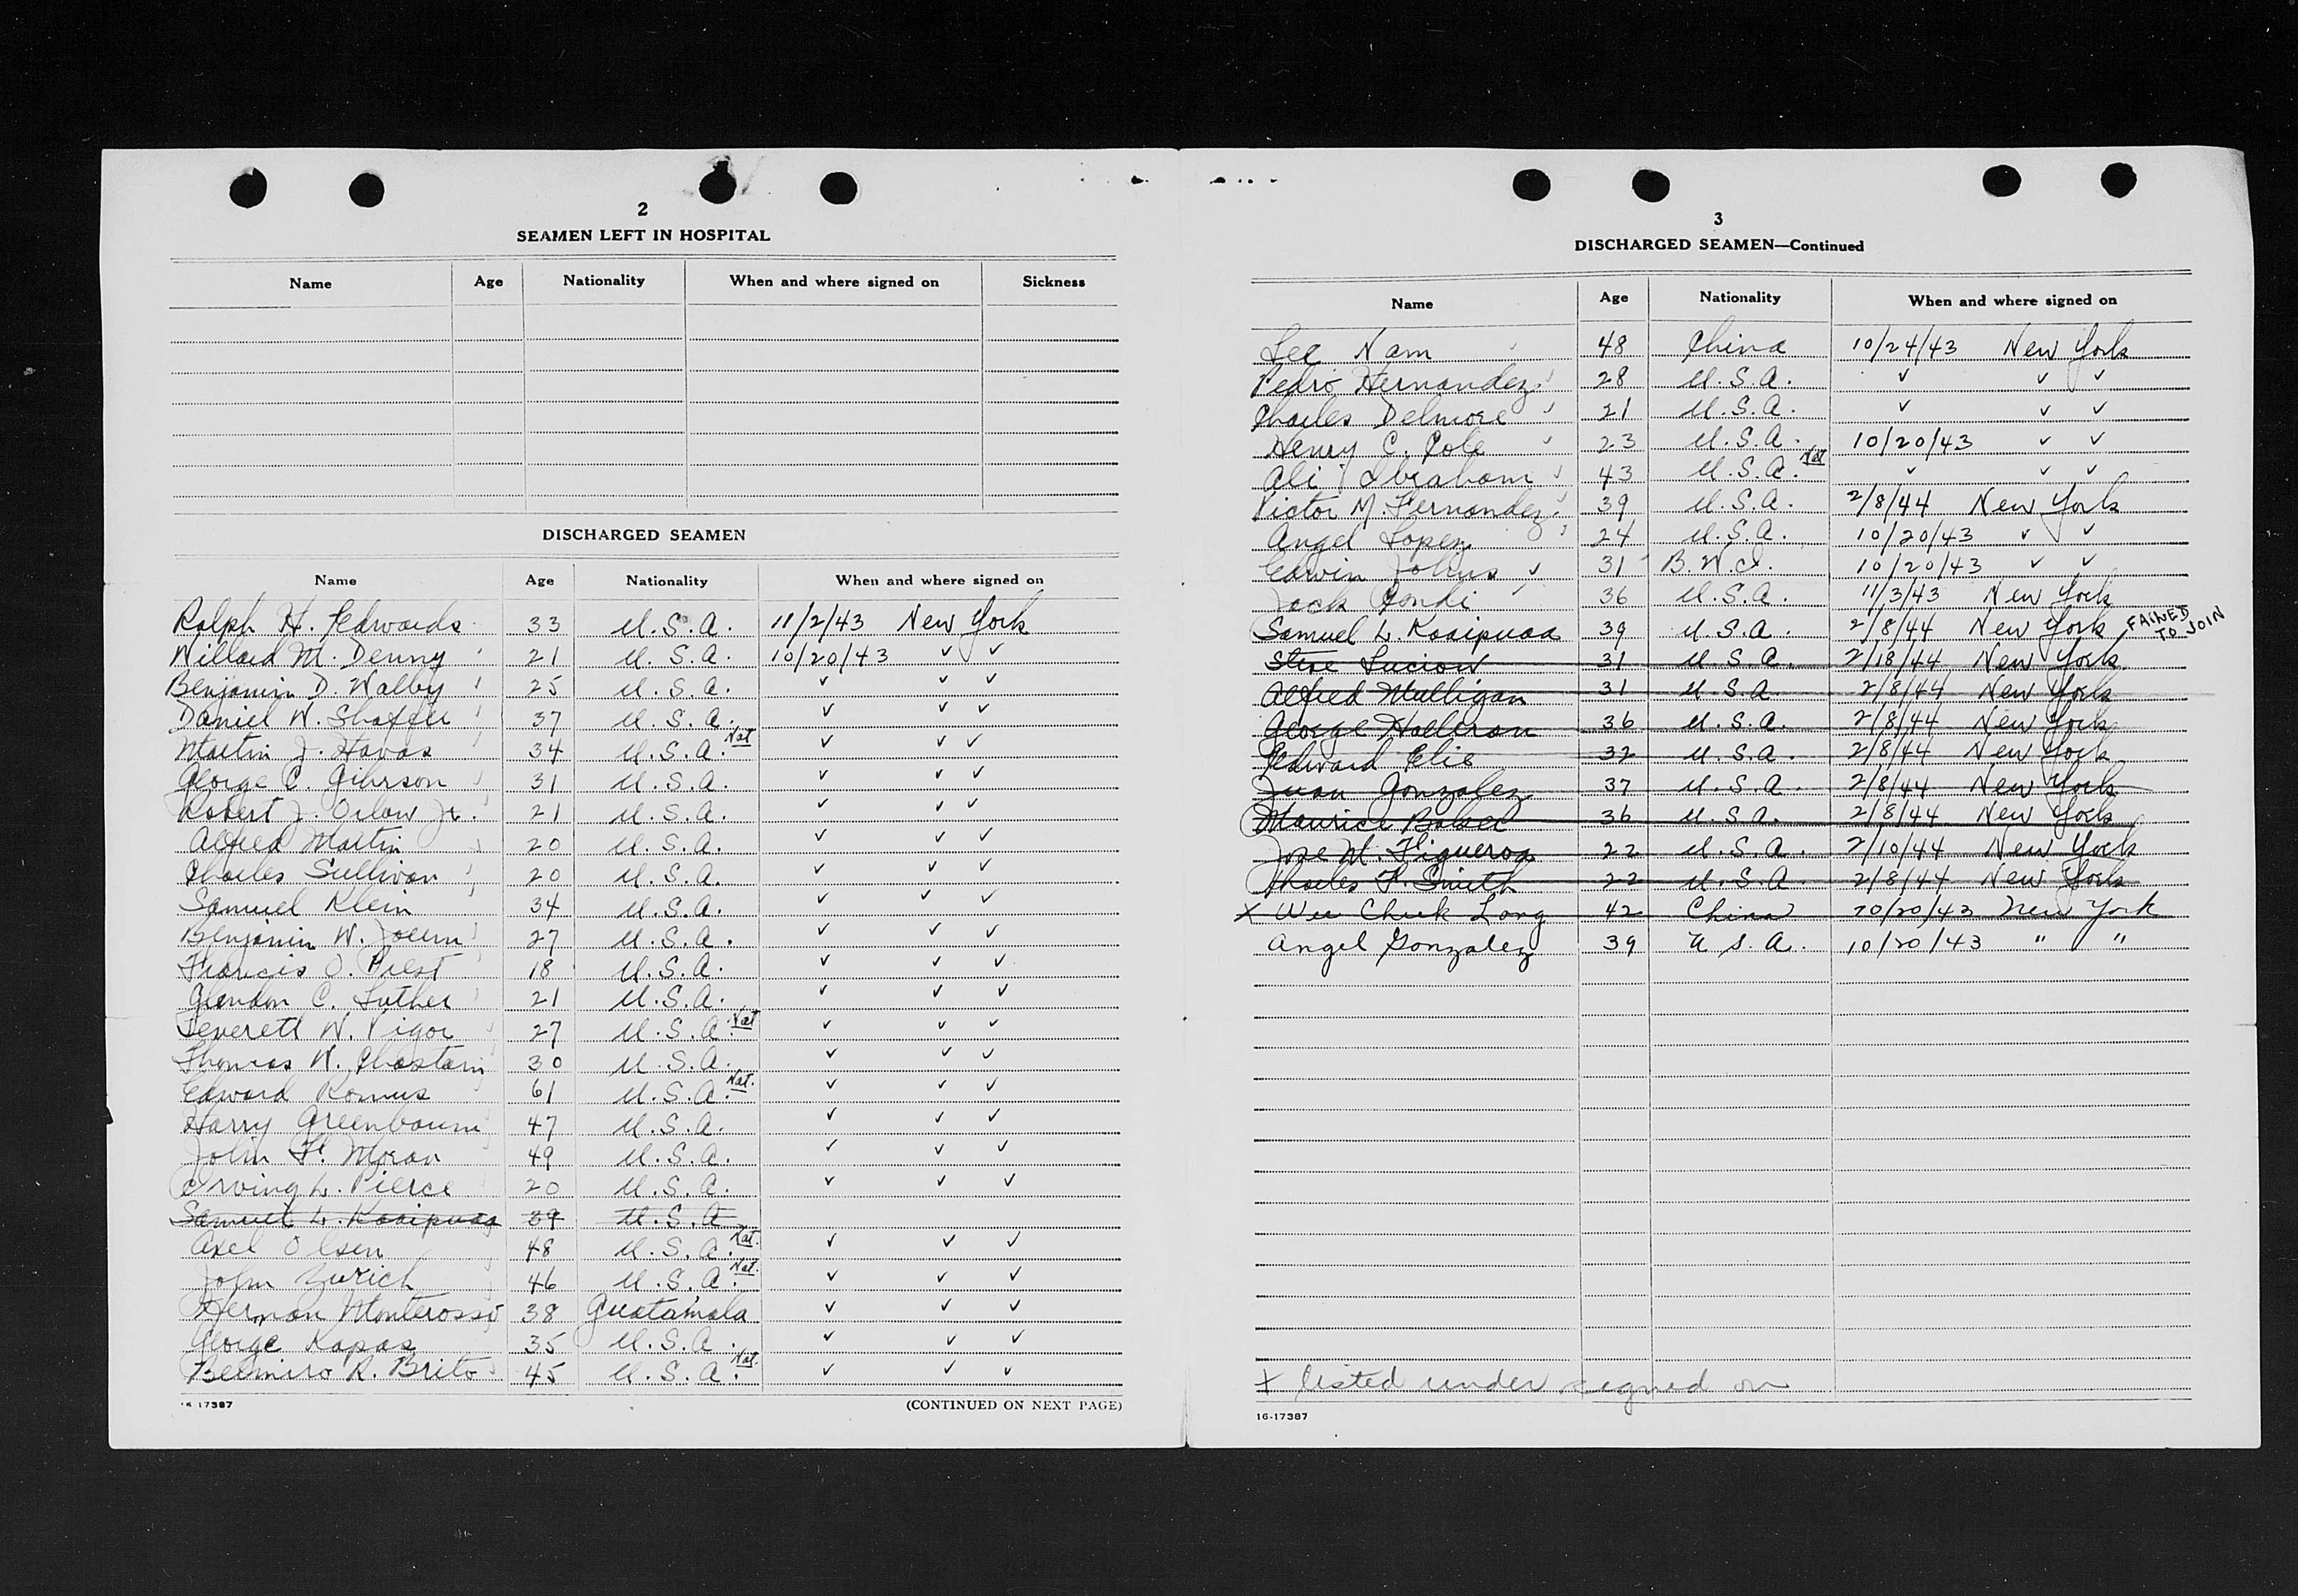 2
SEAMEN LEFT IN HOSPITAL
Name Age Nationality When and where signed on Sickness
DISCHARGED SEAMEN
Name Age Nationality When and where signed on
Ralph H. Edwards 33 U.S.A. 11/2/43 New York
Willard M. Denny 21 U.S.A. 10/20/43 ✓ ✓
Benjamin D. Walby 25 U.S.A. ✓ ✓ ✓
Daniel W. Shafer 37 U.S.A. ✓ ✓ ✓
Martin J. Havas 34 U.S.A. Nat ✓ ✓ ✓
George C. 31 U.S.A. ✓ ✓ ✓
Robert J. Orlow Jr. 21 U.S.A. ✓ ✓ ✓
Alfred Martin 20 U.S.A. ✓ ✓ ✓
Charles Sullivan 20 U.S.A. ✓ ✓ ✓
Samuel Klein 34 U.S.A. ✓ ✓ ✓
Benjamin W. 27 U.S.A. ✓ ✓ ✓
Francis J. Priest 18 U.S.A. ✓ ✓ ✓
Glendon C. Luther 21 U.S.A. ✓ ✓ ✓
Leverett W. Vigor 27 U.S.A. Nat ✓ ✓ ✓
Thomas W. Chastain 30 U.S.A. ✓ ✓ ✓
Edward Romus 61 U.S.A. Nat. ✓ ✓ ✓
Harry Greenbaum 47 U.S.A. ✓ ✓ ✓
John F. Moran 49 U.S.A. ✓ ✓ ✓
Irving L. Pierce 20 U.S.A. ✓ ✓ ✓
Samuel L. Kaaipuaa 39 U.S.A
Axel Olsen 48 U.S.A. Nat. ✓ ✓ ✓
John Zurich 46 U.S.A. Nat. ✓ ✓ ✓
Herman Monterosso 38 Guatamala ✓ ✓ ✓
George Kapas 35 U.S.A. ✓ ✓ ✓
Belmiro R. Brito 45 U.S.A. Nat. ✓ ✓ ✓
16-17387 (CONTINUED ON NEXT PAGE)
3
DISCHARGED SEAMEN—Continued
Name Age Nationality When and where signed on
Lee Nam 48 China 10/24/43 New York
Pedro Hernandez 28 U.S.A. ✓ ✓ ✓
Charles Delmore 21 U.S.A. ✓ ✓ ✓
Henry C. Cole 23 U.S.A. 10/20/43 ✓ ✓
Ali Ibrahom 43 U.S.A. Nat ✓ ✓ ✓
Victor M. Fernandez 39 U.S.A. 2/8/44 New York
Angel Lopez 24 U.S.A. 10/20/43 ✓ ✓
Edwin Johns 31 B.W.I. 10/20/43 ✓ ✓
Jack Gondi 36 U.S.A. 11/3/43 New York
Samuel L. Kaaipuaa 39 U.S.A. 2/8/44 New York FAILED TO JOIN
Steve Luciow 31 U.S.A. 2/18/44 New York
Alfred Mulligan 31 U.S.A 2/8/44 New York
George Holleran 36 U.S.A. 2/8/44 New York
Edward Elie 32 U.S.A. 2/8/44 New York
Juan Gonzalez 37 U.S.A. 2/8/44 New York
Maurice Baker 36 U.S.A. 2/8/44 New York
Jose M. Figueroa 22 U.S.A. 2/10/44 New York
Charles F. Smith 22 U.S.A. 2/8/44 New York
X Wee Cheek Long 42 China 10/20/43 New York
Angel Gonzalez 39 U S.A. 10/20/43 " "
X listed under signed on
16-17387